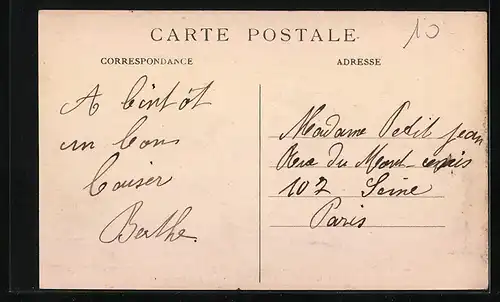 CARTE POSTALE
10
CORRESPONDANCE
ADRESSE
A bintôt
un bons
baiser
Berthe
Madame Petit jean
Rue du Mont cenis
102 Seine
Paris